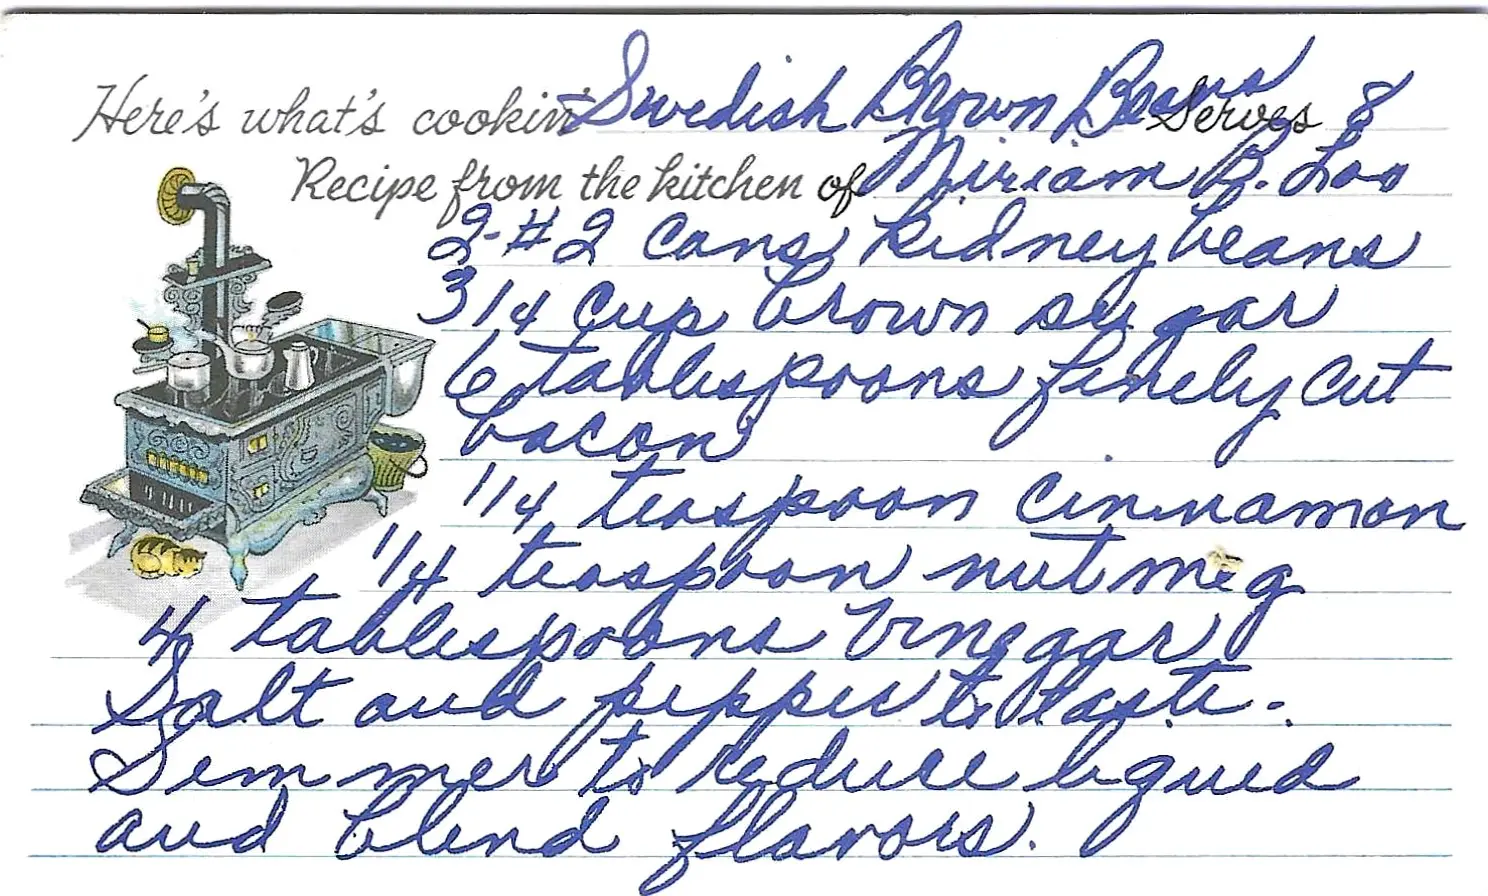 Here's what's cookin' Swedish Brown Beans Serves 8
Recipe from the kitchen of Miriam B. Loo
2-#2 cans kidney beans
3/4 cup brown sugar
6 tablespoons finely cut
bacon
1/4 teaspoon cinnamon
1/4 teaspoon nutmeg
4 tablespoons vinegar
Salt and pepper to taste.
Simmer to reduce liquid
and blend flavors.